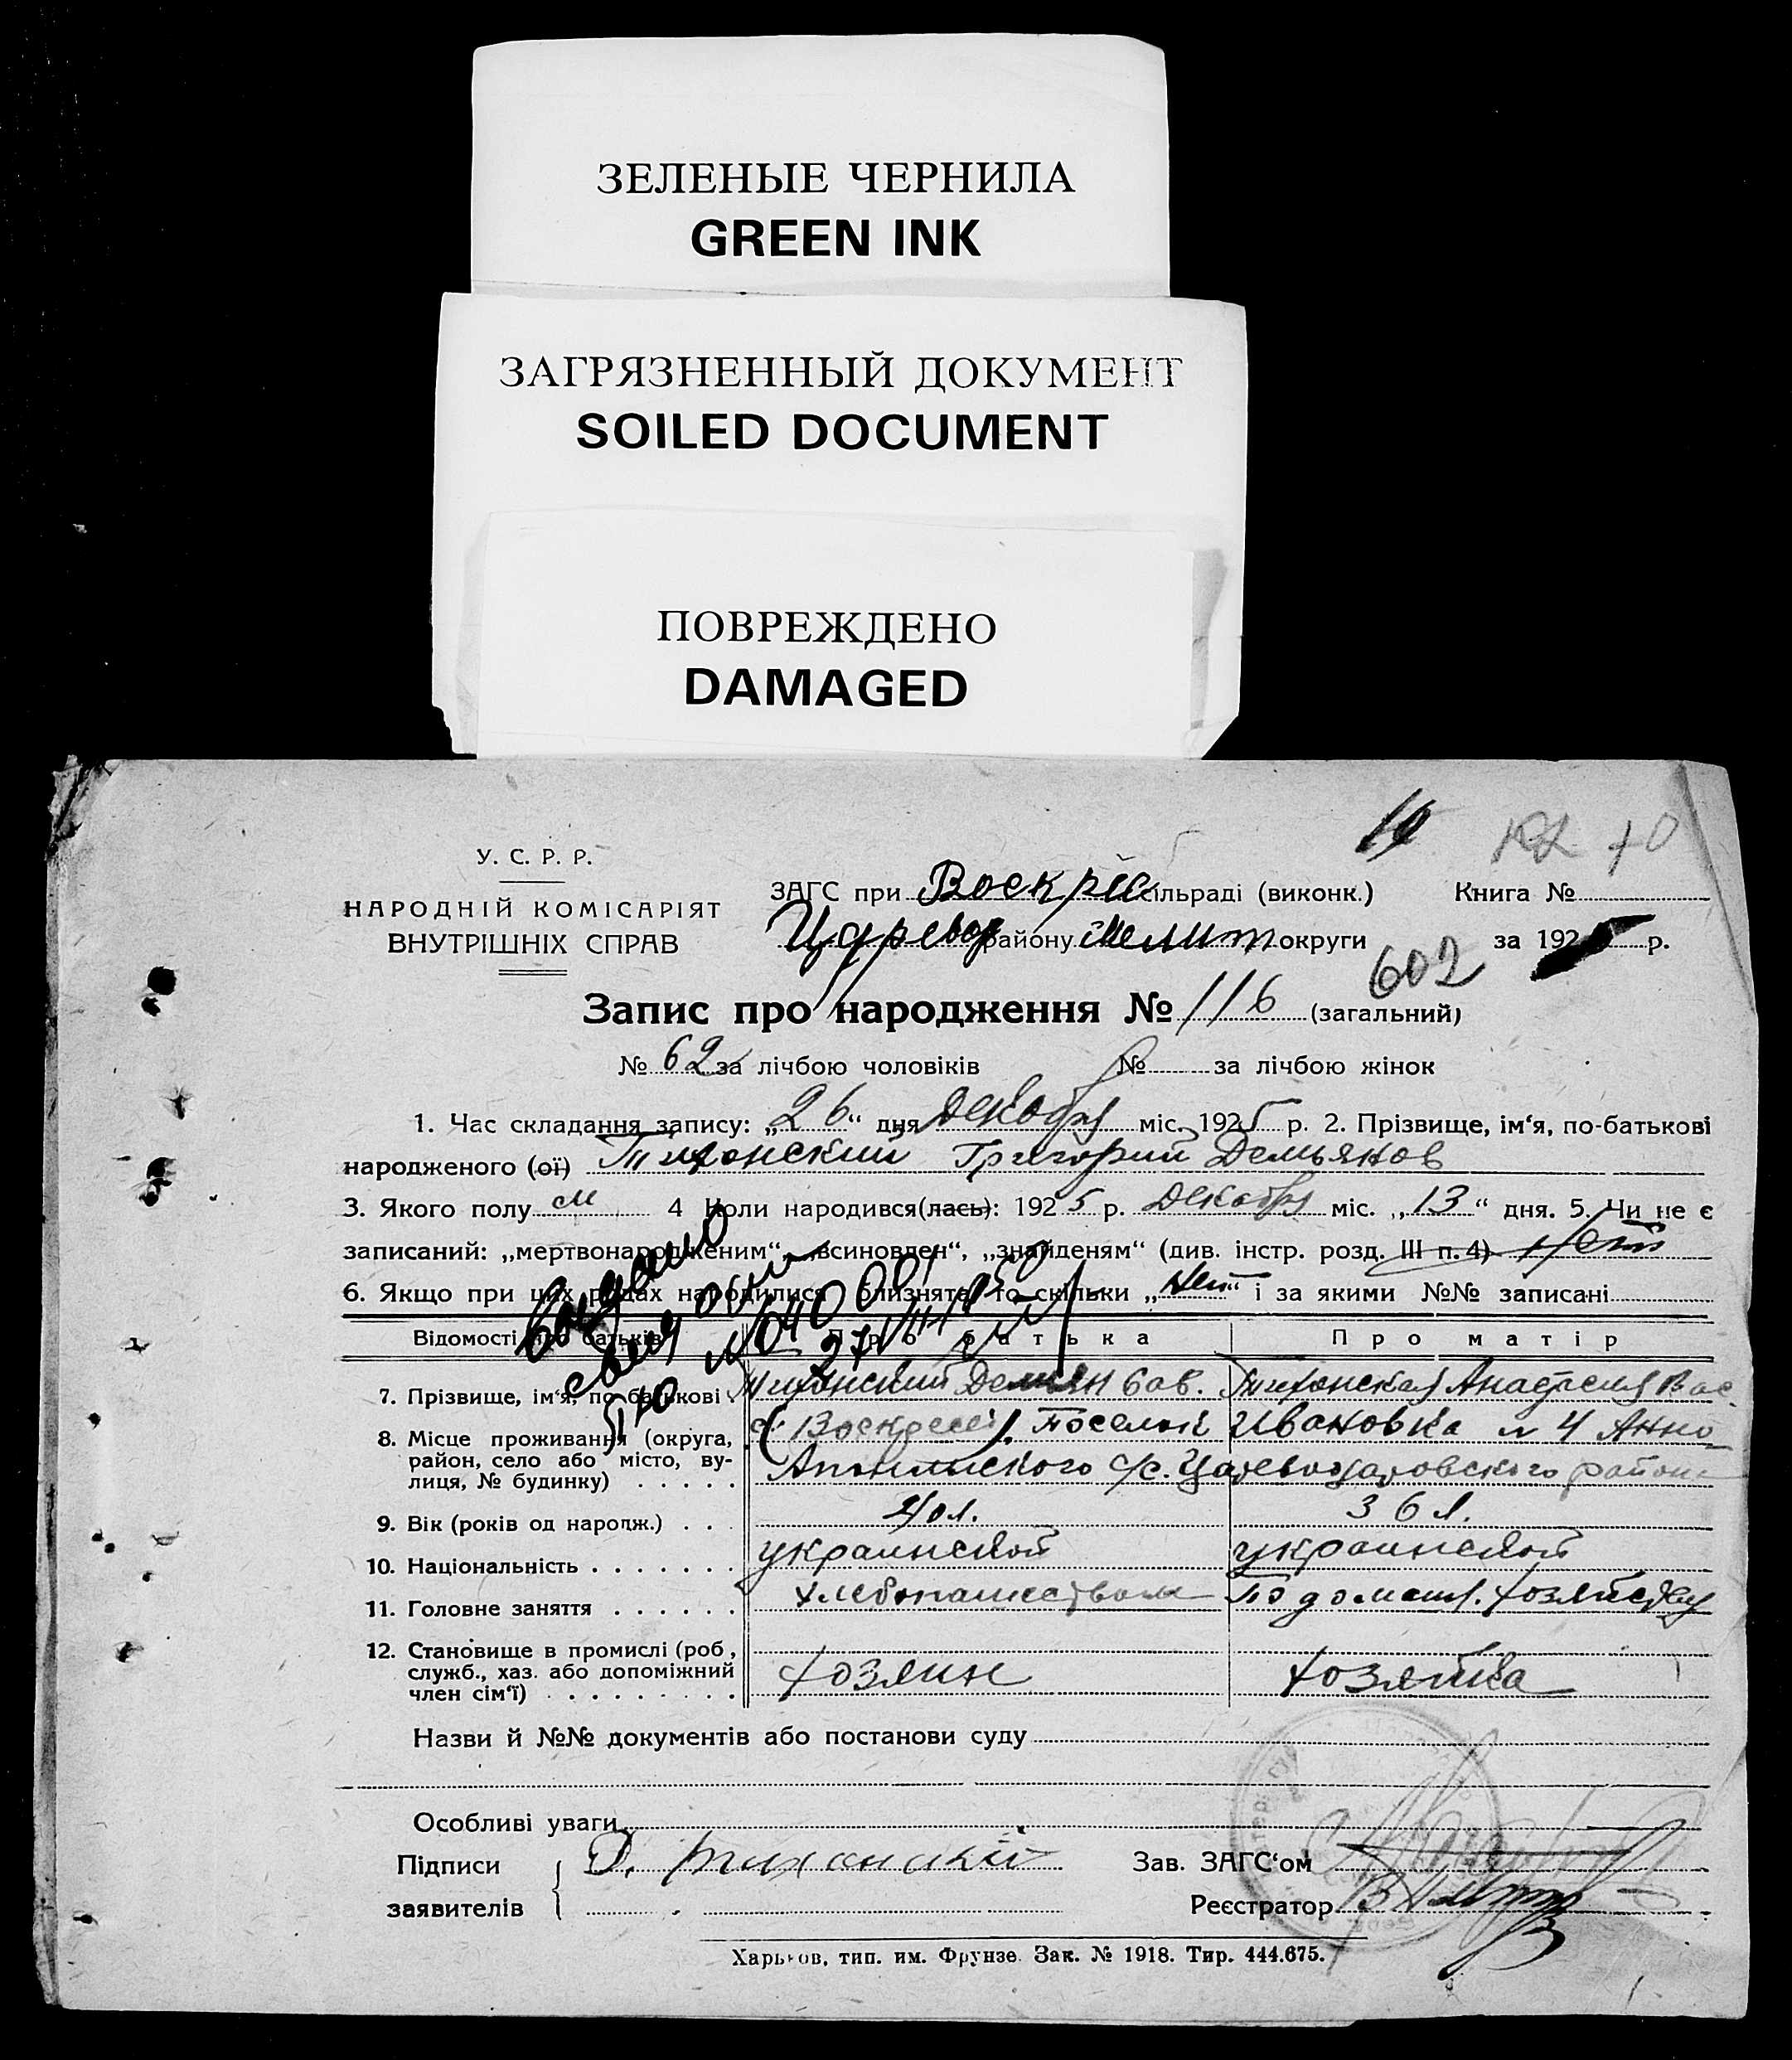 ЗЕЛЕНЫЕ ЧЕРНИЛА
GREEN INK
ЗАГРЯЗНЕННЫЙ ДОКУМЕНТ
SOILED DOCUMENT
ПОВРЕЖДЕНО
DAMAGED
У. С. Р. Р.
НАРОДНІЙ КОМІСАРІЯТ
ВНУТРІШНІХ СПРАВ
ЗАГС при Воскрес сільраді (виконк.) Книга №
Царевод району Мелит округи за 192 р.
602
Запис про народження № 116 (загальний)
№ 62 за лічбою чоловіків № за лічбою жінок
1. Час складання запису: „26“ дня Декабря міс. 1925 р. 2. Прізвище, ім‘я, по-батькові
народженого (ої) Тихонский Григорий Демьянов
3. Якого полу м 4 Коли народився(лась): 1925 р. Декабря міс. „13“ дня. 5. Чи не є
записаний: „мертвонародженим“, „всиновлен“, „знайденям“ (див. інстр. розд. III п. 4) Нет
6. Якщо при цих родах народилися близнята, то скільки „нет“ і за якими №№ записані
Відомості про батьків Про батька Про матір
7. Прізвище, ім‘я, по-батькові Тихонский Демьян Сав. Тихонская Анастасия Вас.
8. Місце проживання (округа, с. Воскресен. Поселок Ивановка № 4 Анно
район, село або місто, ву-
лиця, № будинку) с/с. Цареводаровского района
9. Вік (років од нарож.) 40 л. 36 л.
10. Національність украинской украинской
11. Головне заняття хлебопашеством По домашн. хозяйству
12. Становище в промислі (роб.,
служб., хаз. або допоміжний хозяин хозяйка
член сім‘ї)
Назви й №№ документів або постанови суду
Особливі уваги
Підписи Д. Тихонский Зав. ЗАГС‘ом
заявителів Реєстратор
Харьков, тип. им. Фрунзе. Зак. № 1918. Тир. 444.675.